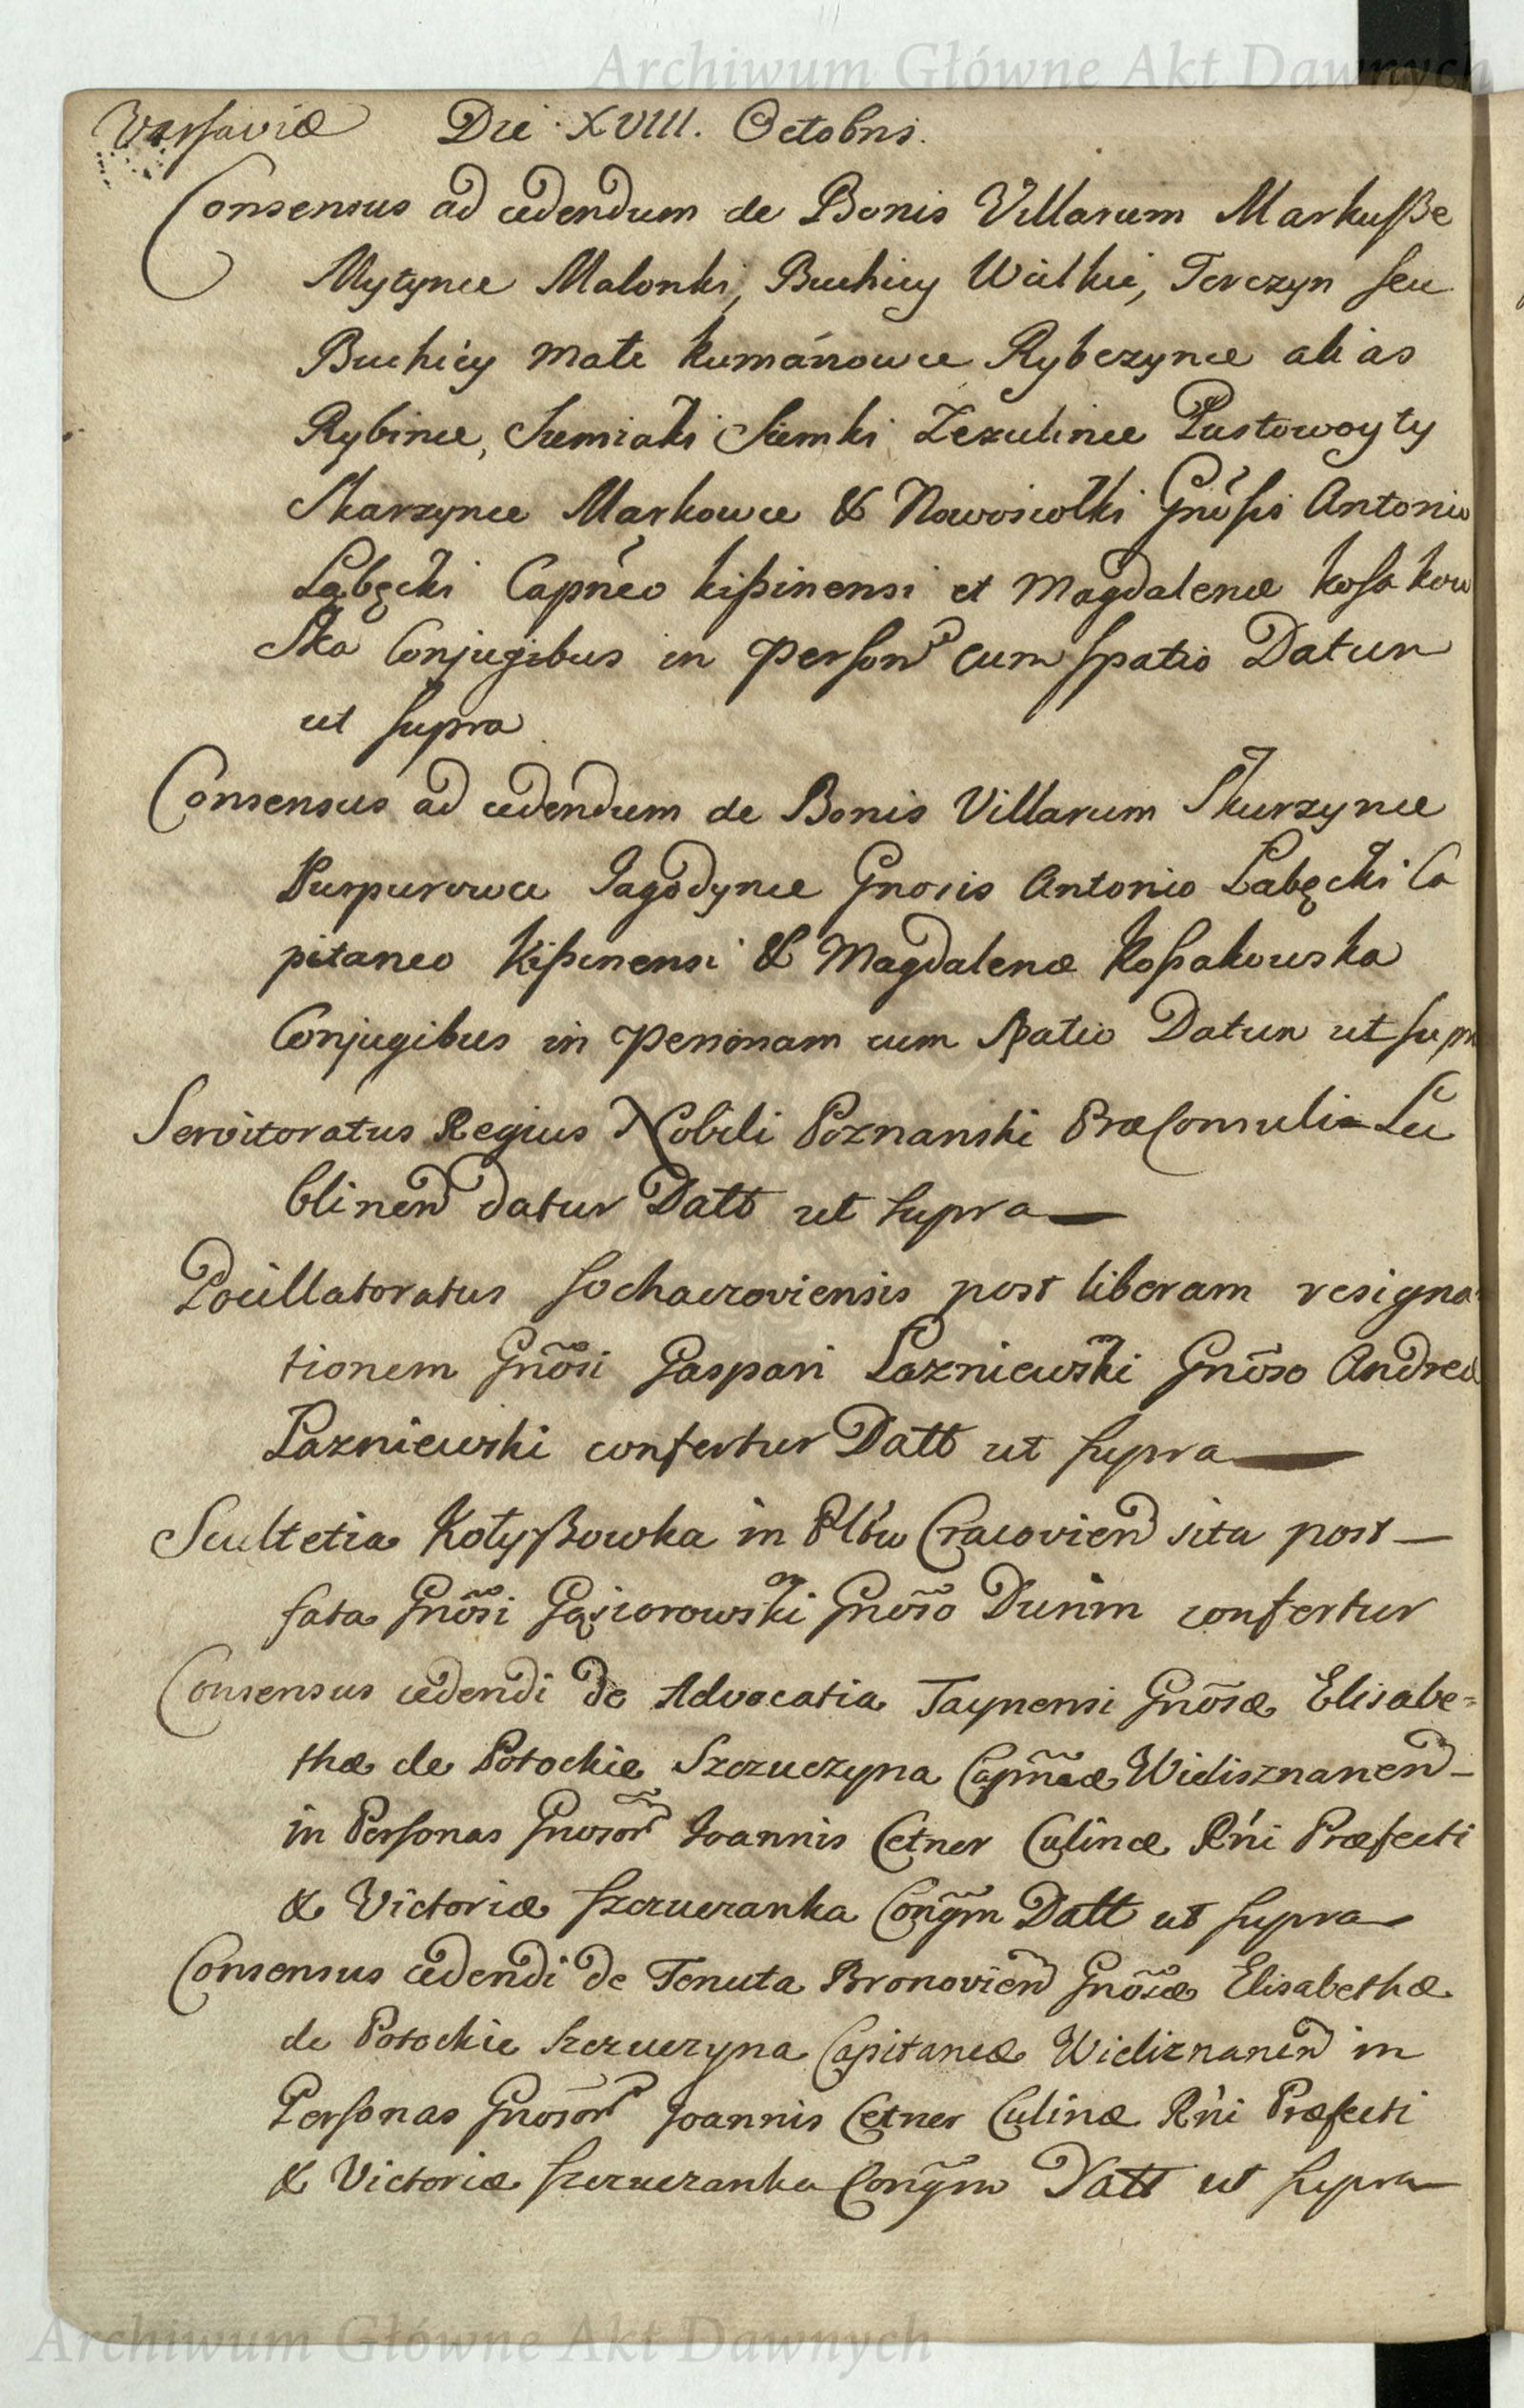 Archiwum Główne Akt Dawnych
Varsaviæ Die XVIII. Octobris.
Consensus ad cedendum de Bonis Villarum Markusße
Mytynce Malonki, Buchicy Wielkie, Terczyn seu
Buchicy małe Kumánowce Rybczynce alias
Rybince, Siemiaki Siemki Zezulince Pustowoyty
Skarzynce Markowce & Nowosiołki Gnosis Antonio
Łąbęcki Capneo Kißinensi et Magdalenæ Kosakow
ska Conjugibus in person cum spatio Datum
ut supra
Consensus ad cedendum de Bonis Villarum Skurzynce
Purpurowce Jagodynce Gnosis Antonio Łabęcki Ca
pitaneo Kißinensi & Magdalenæ Koßakowska
Conjugibus in personam cum spatio Datum ut supra
Servitoratus Regius Nobili Poznanski Præconsuli Lu
blinen datur Datt ut supra
Pocillatoratus Sochaczoviensis post liberam resigna
tionem Gnõsi Gaspari Łazniewski Gnõso Andreæ
Łazniewski confertur Datt ut supra
Scultetia Kołyßowka in Pltu Cracovien sita post
fata Gnõsi Gąsiorowski Gnõso Dunin confertur
Consensus cedendi de Advocatia Taynensi Gnõsæ Elisabe=
thæ de Potockie Szczuczyna Capneæ Wieliznanen
in Personas Gnosor Joannis Cetner Culinæ Rni Præfecti
& Victoriæ Szczuczanka Congm Datt ut supra
Consensus cedendi de Tenuta Bronovien Gnõsæ Elisabethæ
de Potockie Szczuczyna Capitaneæ Wieliznanen in
Personas Gnosor Joannis Cetner Culinæ Rni Præfecti
& Victoriæ Szczuczanka Congm Datt ut supra
Archiwum Główne Akt Dawnych